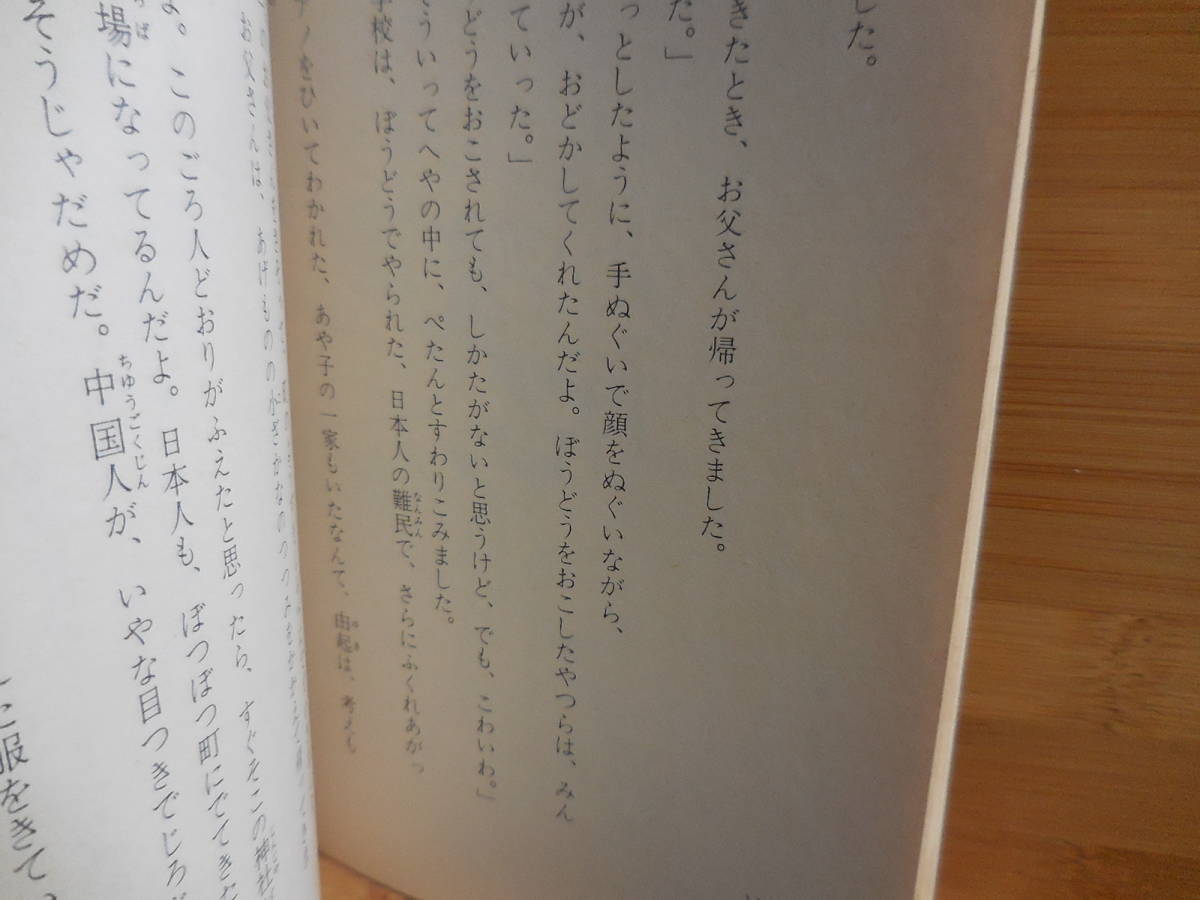 した。
きたとき、お父さんが帰ってきました。
た。」
っとしたように、手ぬぐいで顔をぬぐいながら、
が、おどかしてくれたんだよ。ぼうどうをおこしたやつらは、みん
ていった。」
どうをおこされても、しかたがないと思うけど、でも、こわいわ。」
ういってへやの中に、ぺたんとすわりこみました。
校は、ぼうどうでやられた、日本人の難民で、さらにふくれあがっ
なんみん
ノをひいてわかれた、あや子の一家もいたなんて、由起は、考えも
ゆき
お父さんは、あげものの
よ。このごろ人どおりがふえたと思ったら、すぐそこの神社
場になってるんだよ。日本人も、ぼつぼつ町にでてきた
ば
そうじゃだめだ。中国人が、いやな目つきでじろ
ちゅうごくじん
服をきて、